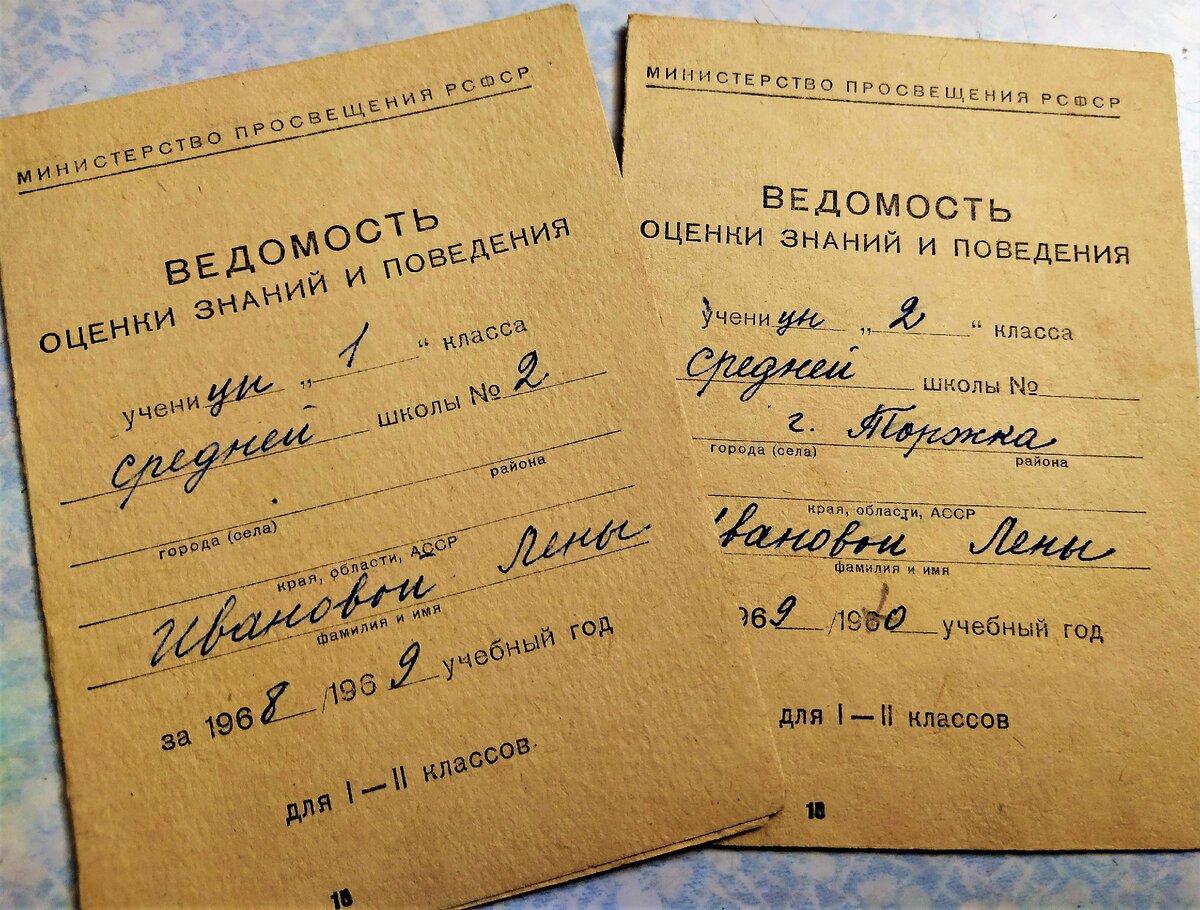 МИНИСТЕРСТВО ПРОСВЕЩЕНИЯ РСФСР
ВЕДОМОСТЬ
ОЦЕНКИ ЗНАНИЙ И ПОВЕДЕНИЯ
учени цы „ 1 “ класса
средней школы № 2
города (села) района
края, области, АССР
Ивановой Лены
фамилия и имя
за 1968/1969 учебный год
для I—II классов
18
МИНИСТЕРСТВО ПРОСВЕЩЕНИЯ РСФСР
ВЕДОМОСТЬ
ОЦЕНКИ ЗНАНИЙ И ПОВЕДЕНИЯ
учени цы „ 2 “ класса
средней школы №
г. Торжка
города (села) района
края, области, АССР
Ивановой Лены
фамилия и имя
969/1970 учебный год
для I—II классов
18